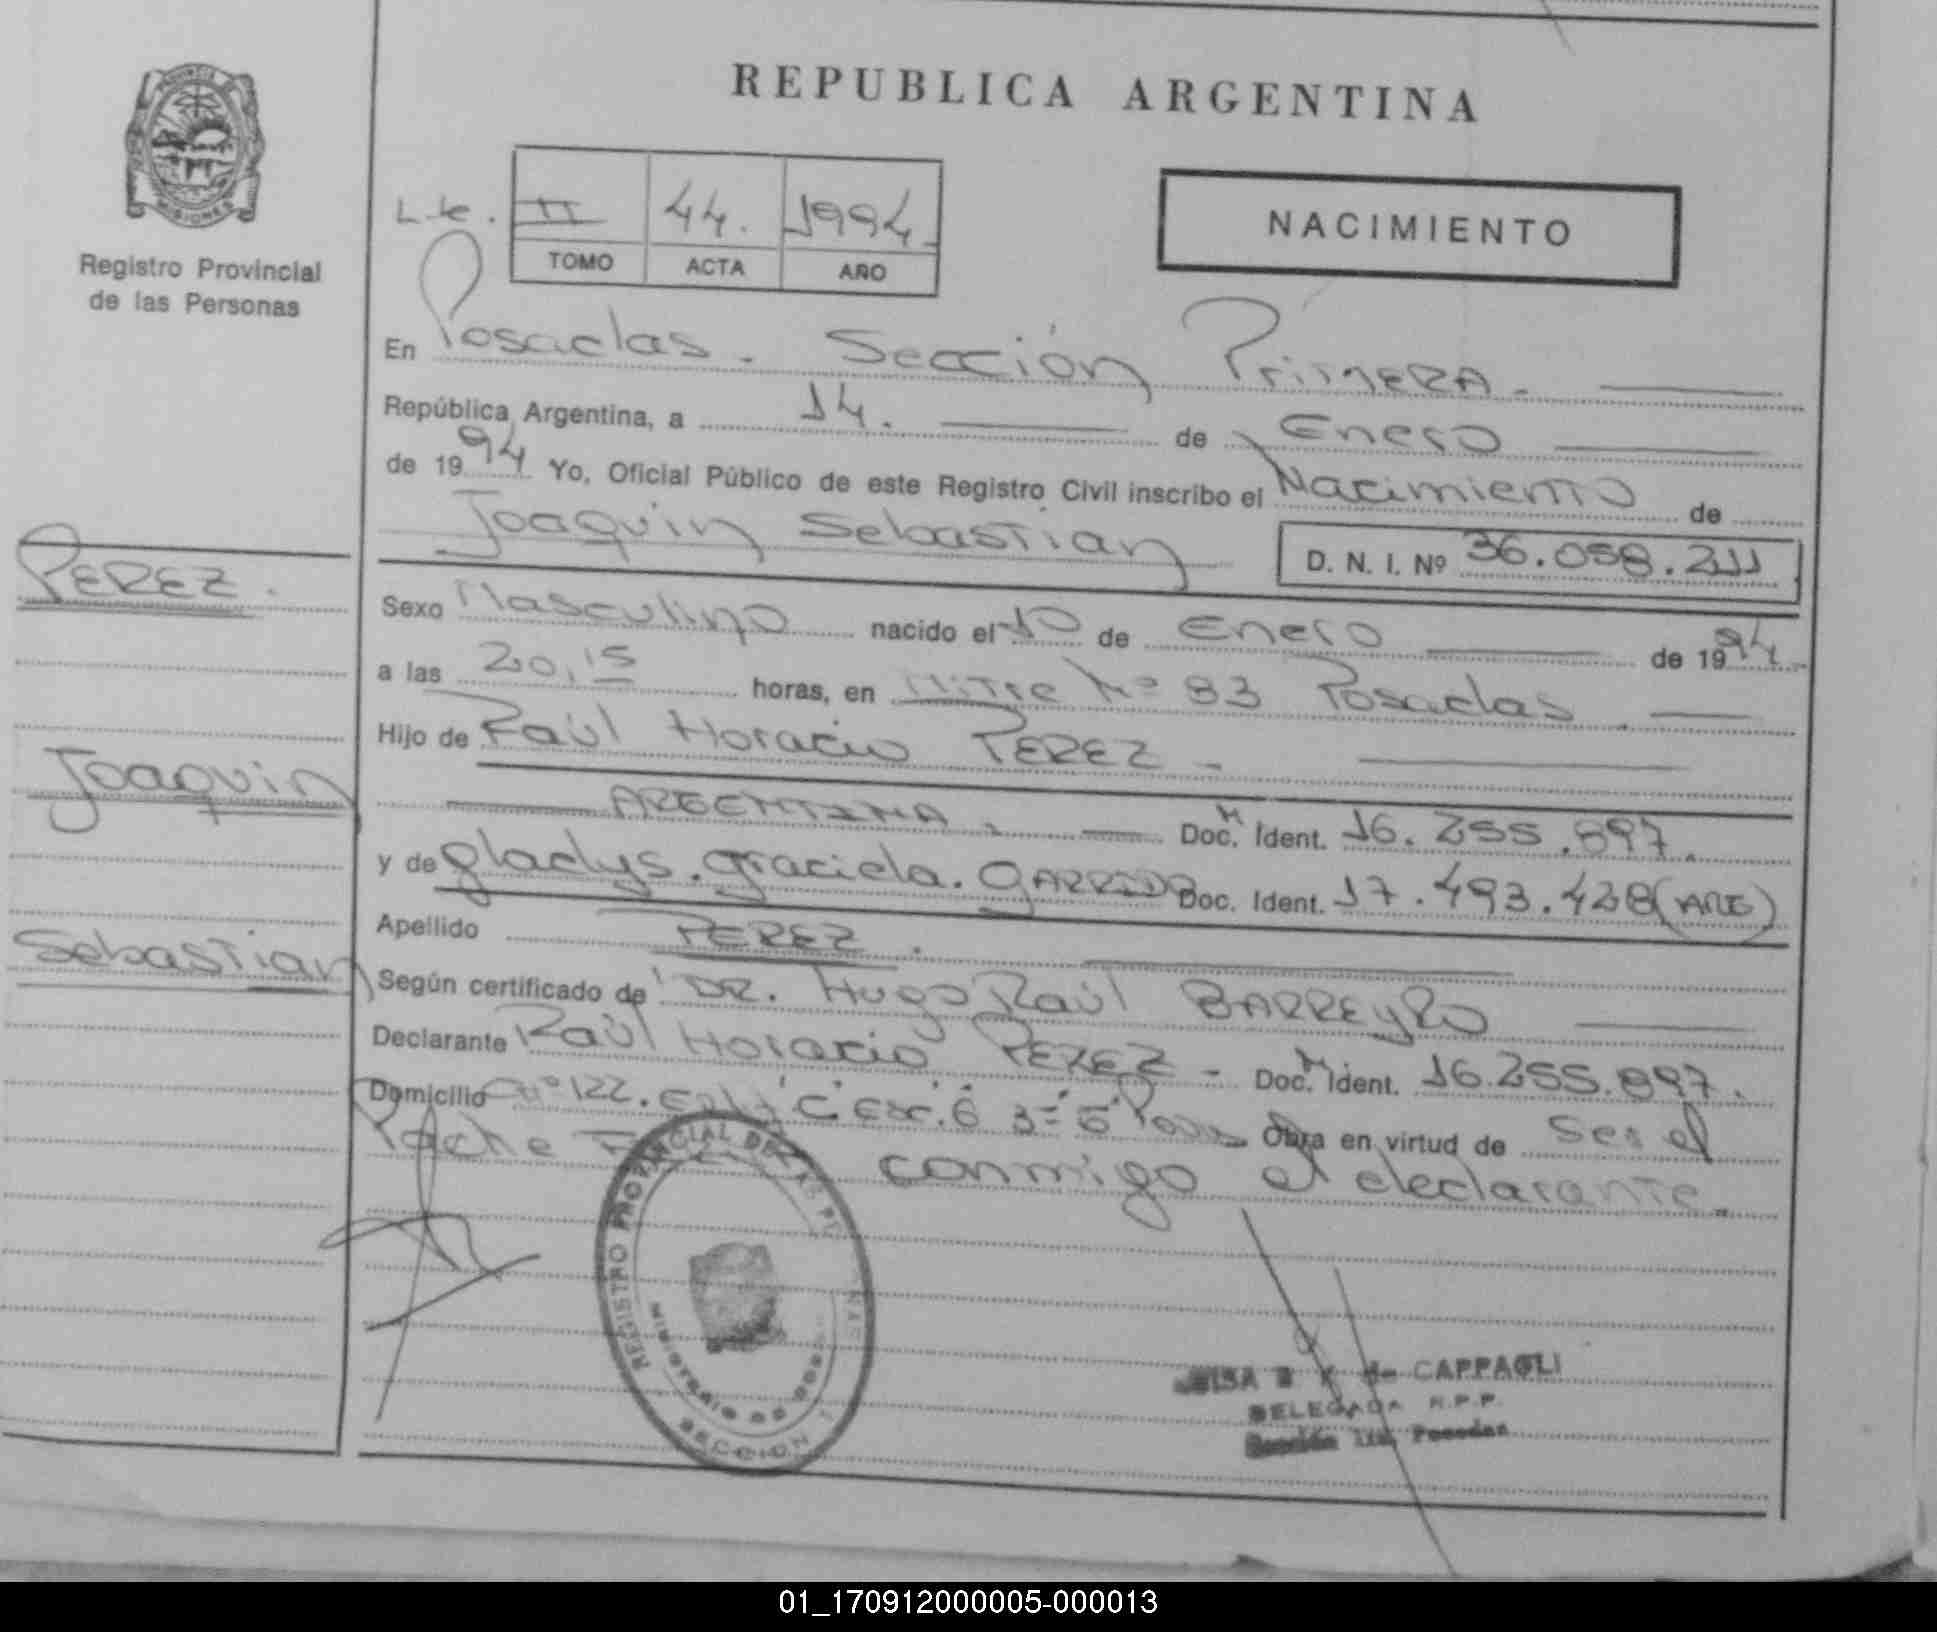 REPUBLICA ARGENTINA
PROVINCIA
MISIONES
Registro Provincial
de las Personas
II 44. 1994.
TOMO ACTA AÑO
NACIMIENTO
En Posadas. Sección Primera.
República Argentina, a 14. de Enero
de 1994 Yo, Oficial Público de este Registro Civil inscribo el Nacimiento de
Joaquin Sebastian D. N. I. Nº 36.058.211
PEREZ.
Joaquin
Sebastian
Sexo Masculino nacido el 10 de Enero de 1994
a las 20,15 horas, en Mitre Nº 83 Posadas.
Hijo de Raúl Horacio PEREZ
ARGENTINA. Doc. Ident. M 16.255.897.
y de gladys. graciela. GARRIDO Doc. Ident. 17.493.428 (ARG)
Apellido PEREZ.
Según certificado de DR. Hugo Raúl BARREYRO
Declarante Raúl Horacio PEREZ - Doc. Ident. M 16.255.897.
Domicilio Nº 122. C Esc. 6 3= Obra en virtud de Ser el
conmigo el declarante.
REGISTRO PROVINCIAL DE LAS
MINISTERIO DE
SECCION
de CAPPAGLI
DELEGADA R.P.P.
Sección 1ra. Posadas
01_170912000005-000013